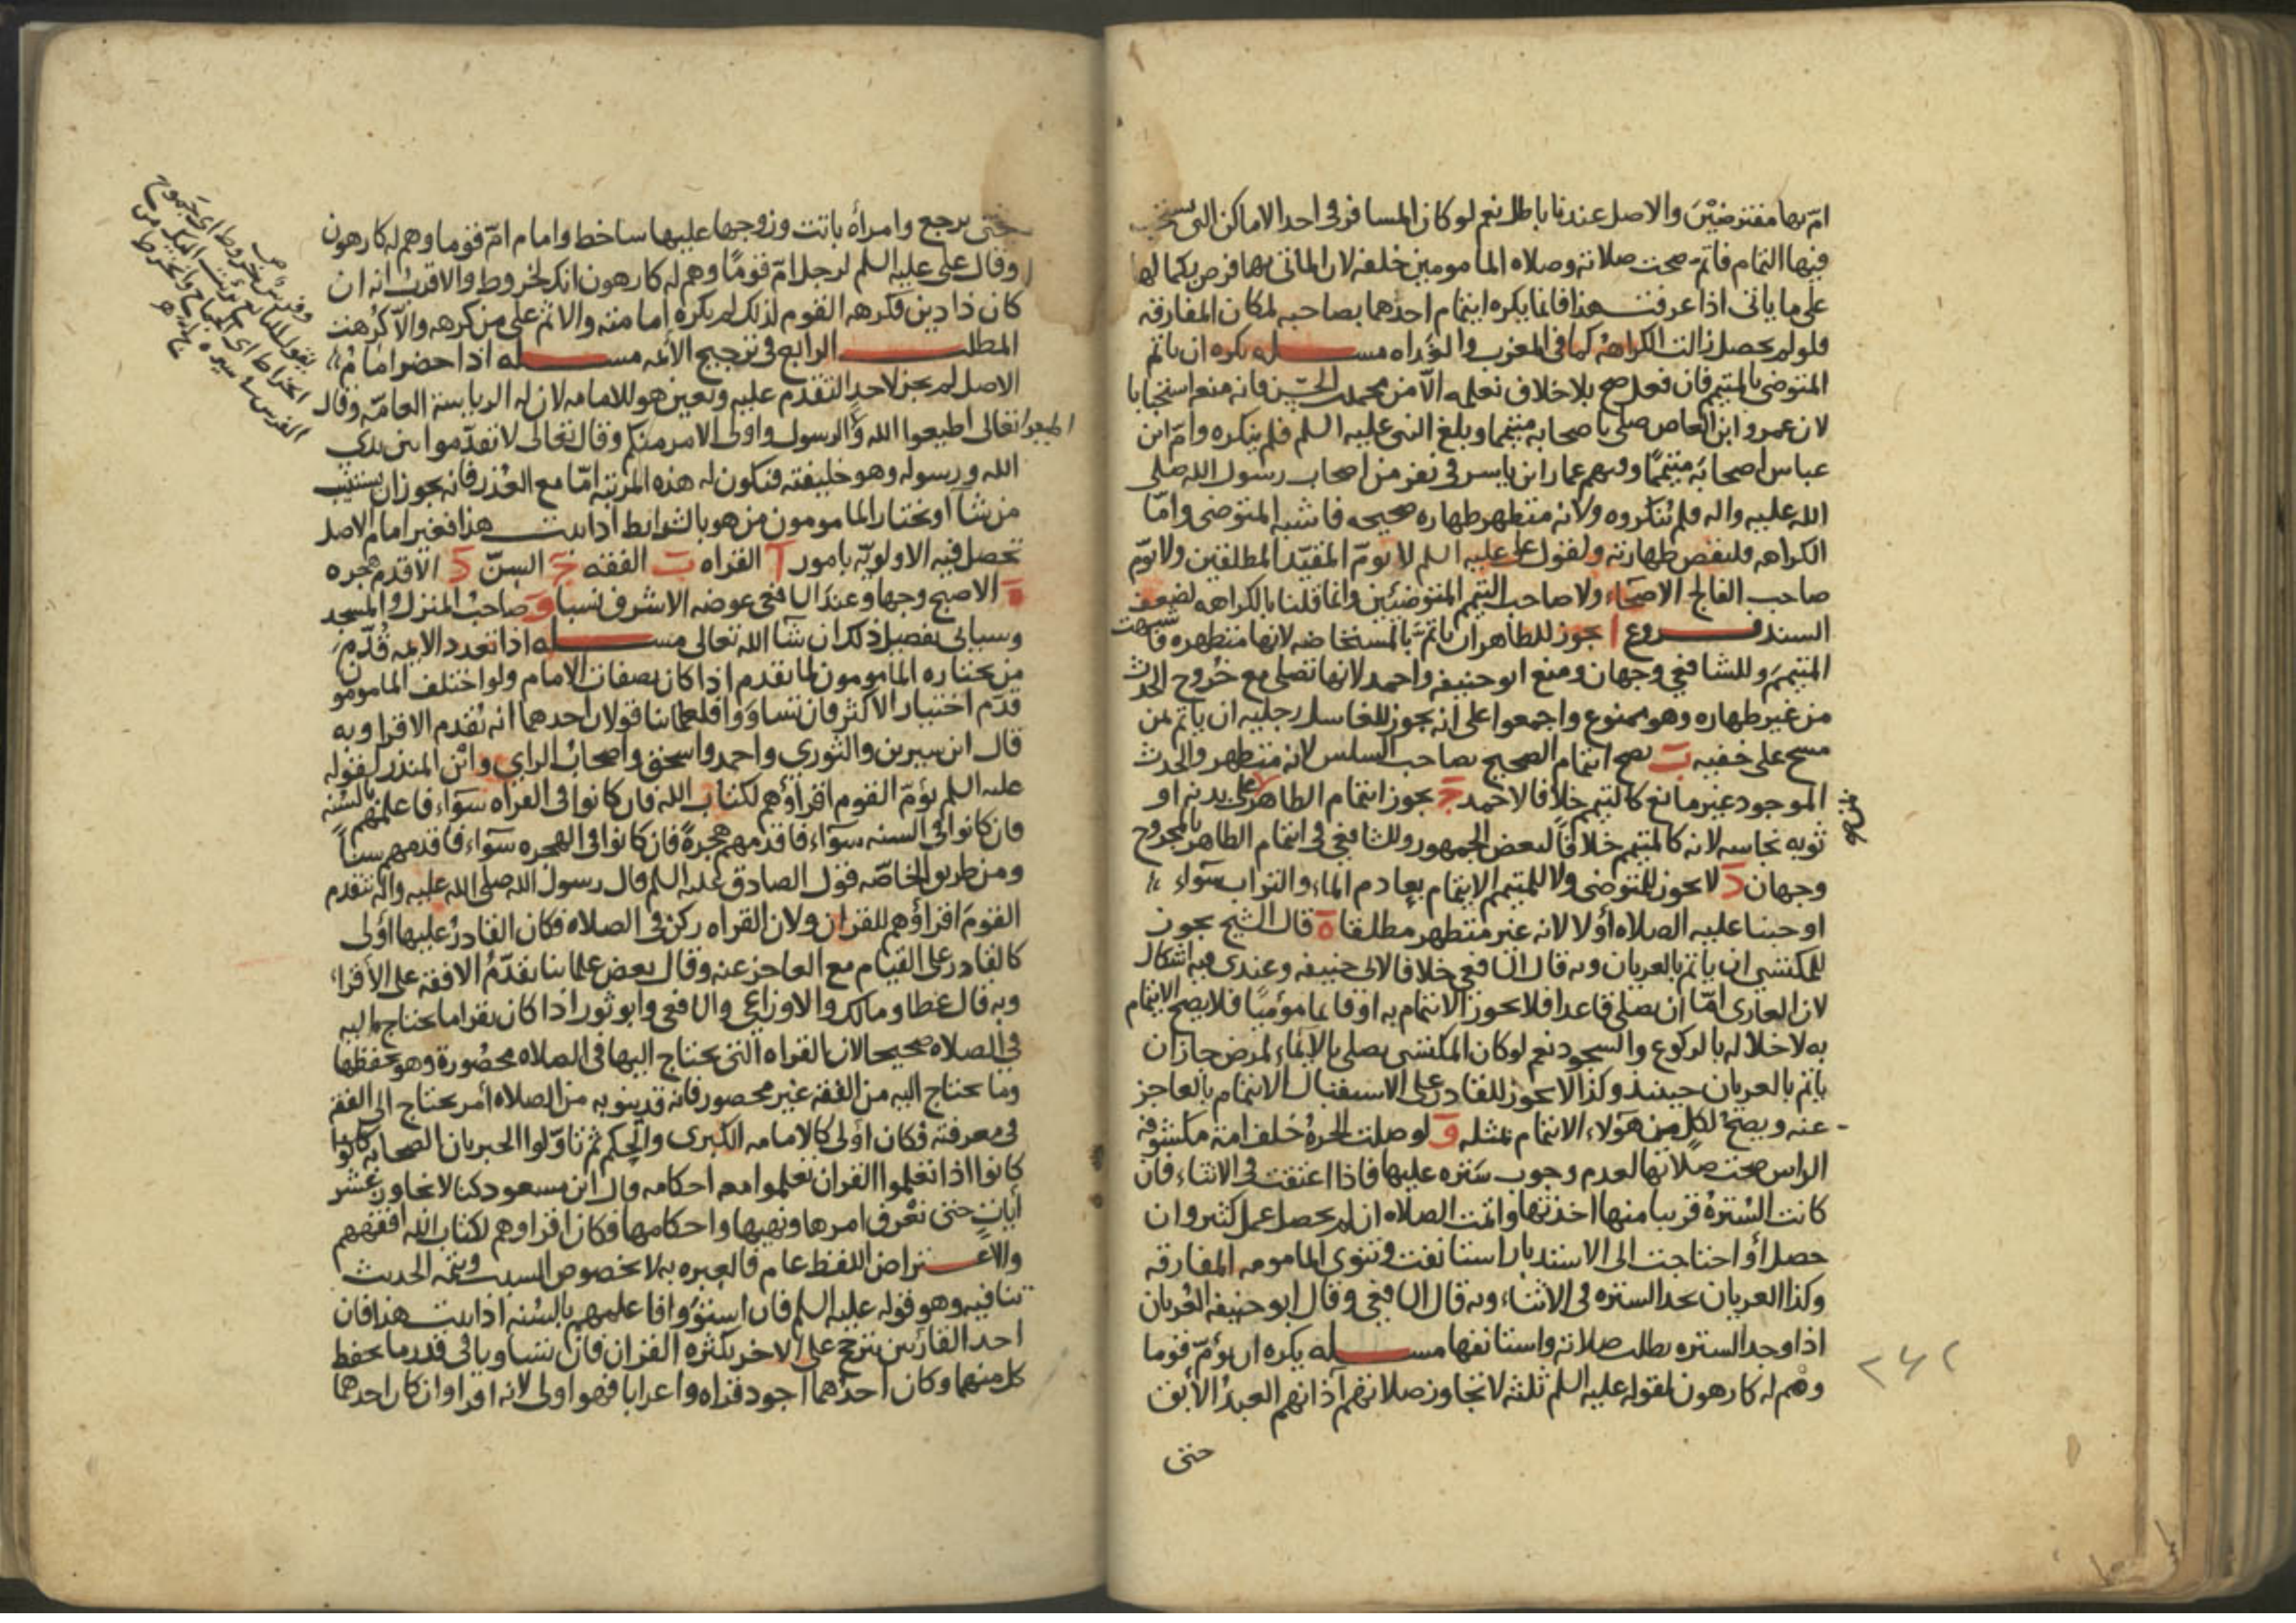 امّ بها مفترضين والاصل عندنا باطل نعم لو كان المسافر في احد الاماكن التي يستحب
فيها التمام فاتم صحت صلاته وصلاه المامومين خلفه لان الماتى بها فرض بكمالها
على ما ياتى اذا عرفت هذا فانما يكره ايتمام احدهما بصاحبه لمكان المفارقه
فلو لم يحصل زالت الكراهه كما في المغرب والغداه مسـله يكره ان ياتم
المتوضى بالمتيمم فان فعل صح بلا خلاف نعلمه الا من محمد بن الحسن فانه منع استحبابا
لان عمرو ابن العاص صلى باصحابه متيمما وبلغ النبى عليه السلم فلم ينكره وامّ ابن
عباس اصحابه متيمما وفيهم عمار ابن ياسر فى نفر من اصحاب رسول الله صلى
الله عليه واله فلم ينكروه ولانه متطهر طهاره صحيحه فاشبه المتوضى وامّا
الكراهه فلنقص طهارته ولقول على عليه السلم لا يومّ المقيّد المطلقين ولا يومّ
صاحب الفالج الاصحاء ولا صاحب التيمم المتوضئين وانما قلنا بالكراهه لضعف
السند فروع ا يجوز للطاهر ان ياتم بالمستحاضه لانها متطهره فاشبهت
المتيمم وللشافعي وجهان ومنع ابو حنيفه واحمد لانها تصلى مع خروج الحدث
من غير طهاره وهو ممنوع واجمعوا على انه يجوز للغاسل رجليه ان ياتم بمن
مسح على خفيه ب يصح ايتمام الصحيح بصاحب السلس لانه متطهر والحدث
الموجود غير مانع كالتيمم خلافا لاحمد ج يجوز ايتمام الطاهر بمن على بدنه او
ثوبه نجاسه لانه كالمتيمم خلافا لبعض الجمهور وللشافعي في ايتمام الطاهر بالمجروح
وجهان د لا يجوز للمتوضى ولا للمتيمم الايتمام بعادم الماء والتراب سواء
اوجبنا عليه الصلاه أولا لانه غير متطهر مطلقا ه قال الشيخ يجوز
للمكتسى ان ياتم بالعريان وبه قال الشافعي خلافا لابى حنيفه وعندى فيه اشكال
لان العارى امّا ان يصلى قاعدا فلا يجوز الايتمام به او قائما موميًا فلا يصح الايتمام
به لاخلاله بالركوع والسجود نعم لو كان المكتسى يصلى بالايماء لمرض جاز ان
ياتم بالعريان حينئذ وكذا لا يجوز للقادر على الاستقبال الايتمام بالعاجز
عنه ويصح لكل من هولاء الايتمام بمثله و لو صلت الحرة خلف امة مكشوفه
الراس صحت صلاتها لعدم وجوب ستره عليها فاذا اعتقت فى الاثناء فان
كانت السترة قريبا منها اخذتها واتمت الصلاه ان لم يحصل عمل كثير وان
حصل أو احتاجت الى الاستدبار استانفت وتنوى المامومه المفارقه
وكذا العريان يجد الستره فى الاثناء وبه قال الشافعي وقال ابو حنيفه العريان
اذا وجد الستره بطلت صلاته واستانفها مسـله يكره ان يؤمّ قوما
وهم له كارهون لقوله عليه السلم ثلثه لا تجاوز صلاتهم آذانهم العبد الابق
حتى
٢٤٢
حتى يرجع وامرأه باتت وزوجها عليها ساخط وامام امّ قوما وهم له كارهون
وقال على عليه السلم لرجل امّ قومًا وهم له كارهون انك لخروط والاقرب انه ان
كان ذا دين فكرهه القوم لذلك لم يكره امامته والاثم على من كرهه والاّ كرهت
المطلب الرابع فى ترجيح الأئمه مسـله اذا حضر امام
الاصل لم يجز لاحد التقدم عليه وتعين هو للامامه لان له الرياسة العامّه وقال
تعالى اطيعوا الله واطيعوا الرسول واولى الامر منكم وقال تعالى لا تقدّموا بين يدى
الله ورسوله وهو خليفته فتكون له هذه المرتبه امّا مع العذر فانه يجوز ان يستنيب
من شآ او يختار المامومون من هو بالشرايط اذا ثبت هذا فغير امام الاصل
تحصل فيه الاولويّه بامور آ القراه ب الفقه ج السنّ د الاقدم هجره
ه الاصبح وجها وعند الشافعى عوضه الاشرف نسبا و صاحب المنزل والمسجد
وسياتى تفصيل ذلك ان شآ الله تعالى مسـله اذا تعدد الايمه قدّم
من يختاره المامومون لما تقدم اذا كان بصفات الامام ولو اختلف المامومون
قدّم اختيار الاكثر فان تساووا فلعلمائنا قولان احدهما انه يقدم الاقرا وبه
قال ابن سيرين والثورى واحمد واسحق واصحاب الراي وابن المنذر لقوله
عليه السلم يؤمّ القوم اقراؤهم لكتاب الله فان كانوا فى القراه سواء فاعلمهم بالسنه
فان كانوا فى السنه سواء فاقدمهم هجرةً فان كانوا فى الهجره سواء فاقدمهم سنّاً
ومن طريق الخاصّه قول الصادق عليه السلم قال رسول الله صلى الله عليه واله يتقدم
القوم اقراؤهم للقران ولان القراه ركن فى الصلاه فكان القادر عليها أولى
كالقادر على القيام مع العاجز عنه وقال بعض علمائنا يقدّم الافقه على الأقراء
وبه قال عطا ومالك والاوزاعى والشافعى وابو ثور اذا كان يقرا ما يحتاج اليه
فى الصلاه صحيحا لان القراه التى يحتاج اليها فى الصلاه محصورة وهو يحفظها
وما يحتاج اليه من الفقه غير محصور فانه قد ينوبه من الصلاه أمر يحتاج الى الفقه
فى معرفته فكان أولى كالامامه الكبرى والحكم ثم تأوّلوا الخبر بان الصحابه
كانوا اذا تعلموا القران تعلموا معه احكامه وقال ابن مسعود كنا لا نجاوز عشر
أيات حتى نعرف امرها ونهيها واحكامها فكان اقراوهم لكتاب الله افقههم
والاعتراض اللفظ عام فالعبره به لا بخصوص السبب وتتمه الحديث
تنافيه وهو قوله عليه السلم فان استووا فاعلمهم بالسنه اذا ثبت هذا فان
احد القارئين يترجح على الاخر بكثره القران فان تساويا فى قدر ما يحفظ
كل منهما وكان احدهما اجود قراه واعرابا فهو اولى لانه اقرا وان كان احدهما